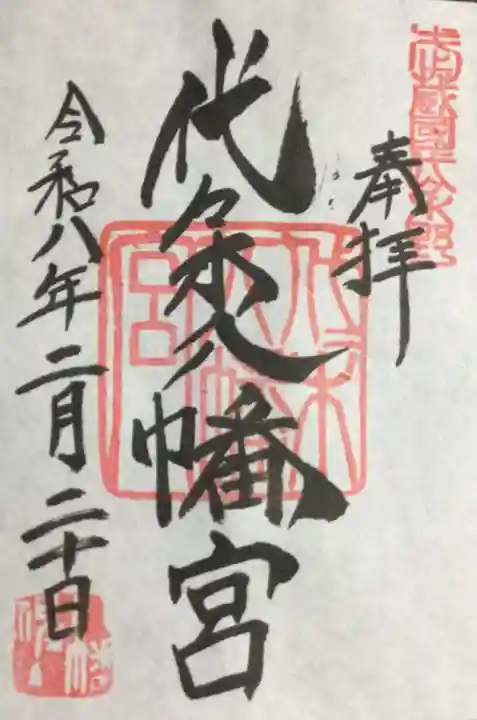 奉拝
代々木八幡宮
令和八年二月二十日
代々木八幡宮